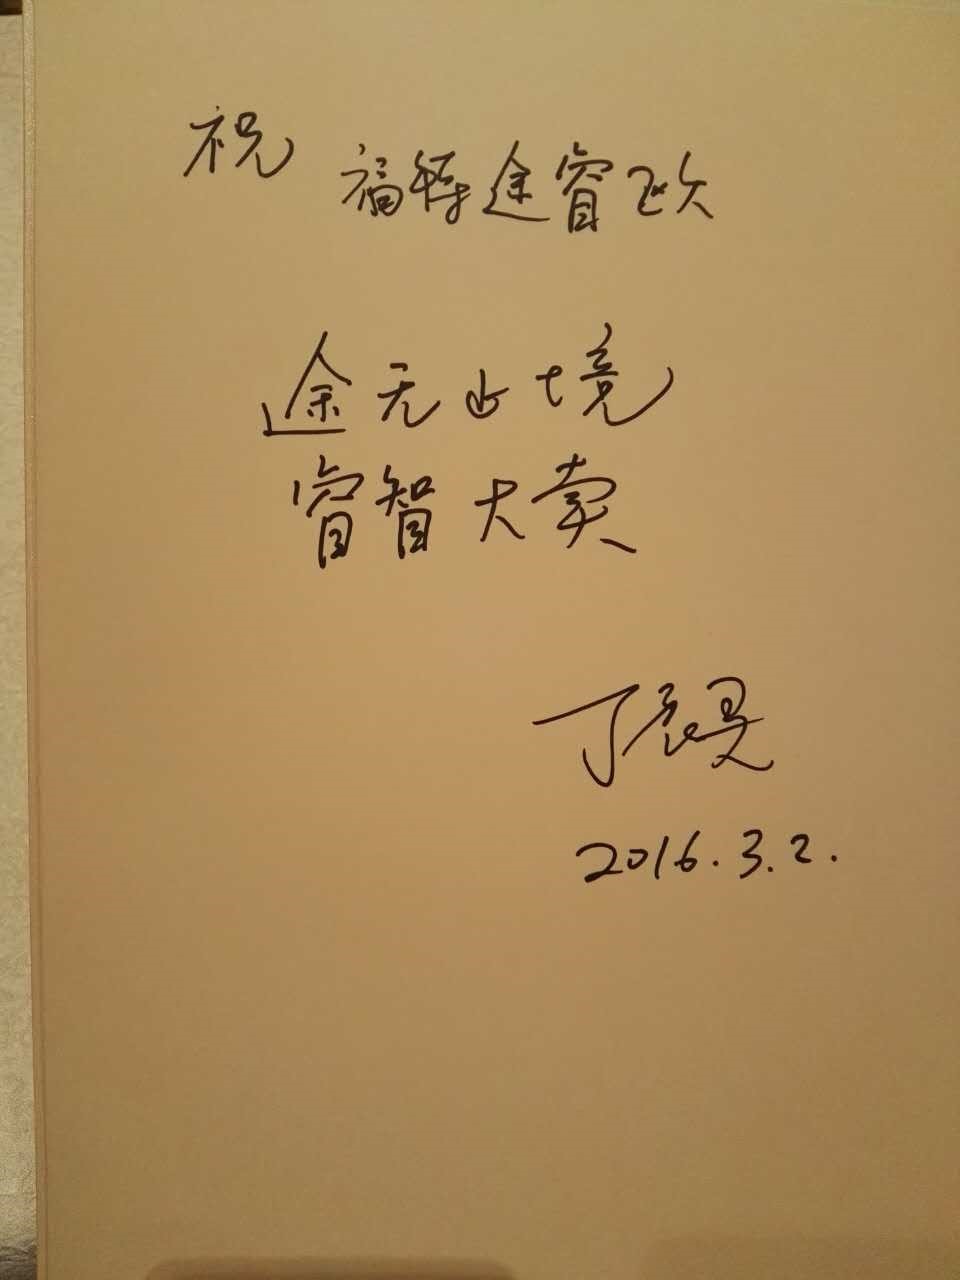 祝
福特途睿欧
途无止境
睿智大卖
丁辰昊
2016.3.2.